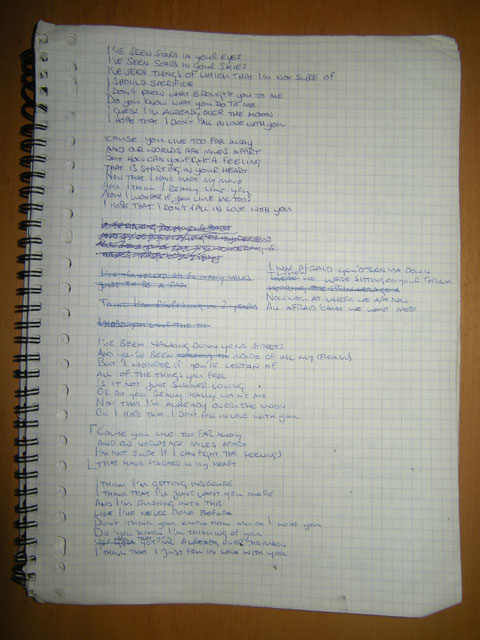 I'VE SEEN STARS IN YOUR EYES
I'VE SEEN STARS IN YOUR SKIES
I'VE SEEN THINGS OF WHICH THAT I'M NOT SURE OF
I SHOULD SACRIFICE
I DON'T KNOW WHAT BROUGHT YOU TO ME
DO YOU KNOW WHAT YOU DO TO ME
I GUESS I'M ALREADY OVER THE MOON
I HOPE THAT I DON'T FALL IN LOVE WITH YOU
'CAUSE YOU LIVE TOO FAR AWAY
AND OUR WORLDS ARE MILES APART
BUT HOW CAN YOU FIGHT A FEELING
THAT IS STARTING IN YOUR HEART
NOW THAT I HAVE MADE MY MIND
AND I THINK I REALLY LIKE YOU
NOW I WONDER IF YOU LIKE ME TOO
I HOPE THAT I DON'T FALL IN LOVE WITH YOU
I'VE TRAVELED SO MANY MILES
JUST TO BE
I WAS AFRAID YOU'D TURN ME DOWN
WE WERE SITTING ON YOUR
NOW LOOK AT WHERE WE ARE NOW
ALL AFRAID CAUSE WE WANT MORE
I'VE BEEN WALKING DOWN YOUR STREETS
AND YOU'VE BEEN INSIDE OF ALL MY DREAMS
BUT I WONDER IF YOU'RE CERTAIN OF
ALL OF THE THINGS YOU FEEL
IS IT NOT JUST SUMMER LOVING
OR DO YOU REALLY REALLY WANT ME
NOW THAT I'M ALREADY OVER THE MOON
OH I HOPE THAT I DON'T FALL IN LOVE WITH YOU
'CAUSE YOU LIVE TOO FAR AWAY
AND OUR WORLDS ARE MILES APART
I'M NOT SURE IF I CAN FIGHT THE FEELINGS
THAT HAVE STARTED IN MY HEART
I THINK I'M GETTING INSECURE
I THINK THAT I'LL JUST WANT YOU MORE
AND I'M RUSHING INTO THIS
LIKE I'VE NEVER DONE BEFORE
DON'T THINK YOU KNOW HOW MUCH I LOVE YOU
DO YOU KNOW I'M THINKING OF YOU
YOU GOT ME ALREADY OVER THE MOON
I THINK THAT I JUST FELL IN LOVE WITH YOU